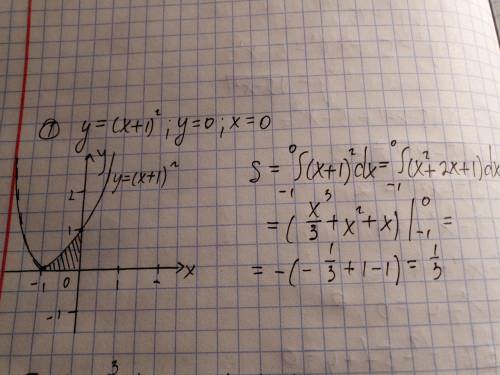 ① y=(x+1)²; y=0; x=0
y
y=(x+1)²
2
1
-1 0 1 2 x
-1
S = ∫₋₁⁰(x+1)²dx = ∫₋₁⁰(x²+2x+1)dx
= (x³/3 + x² + x) |₋₁⁰ =
= -(-1/3 + 1 - 1) = 1/3